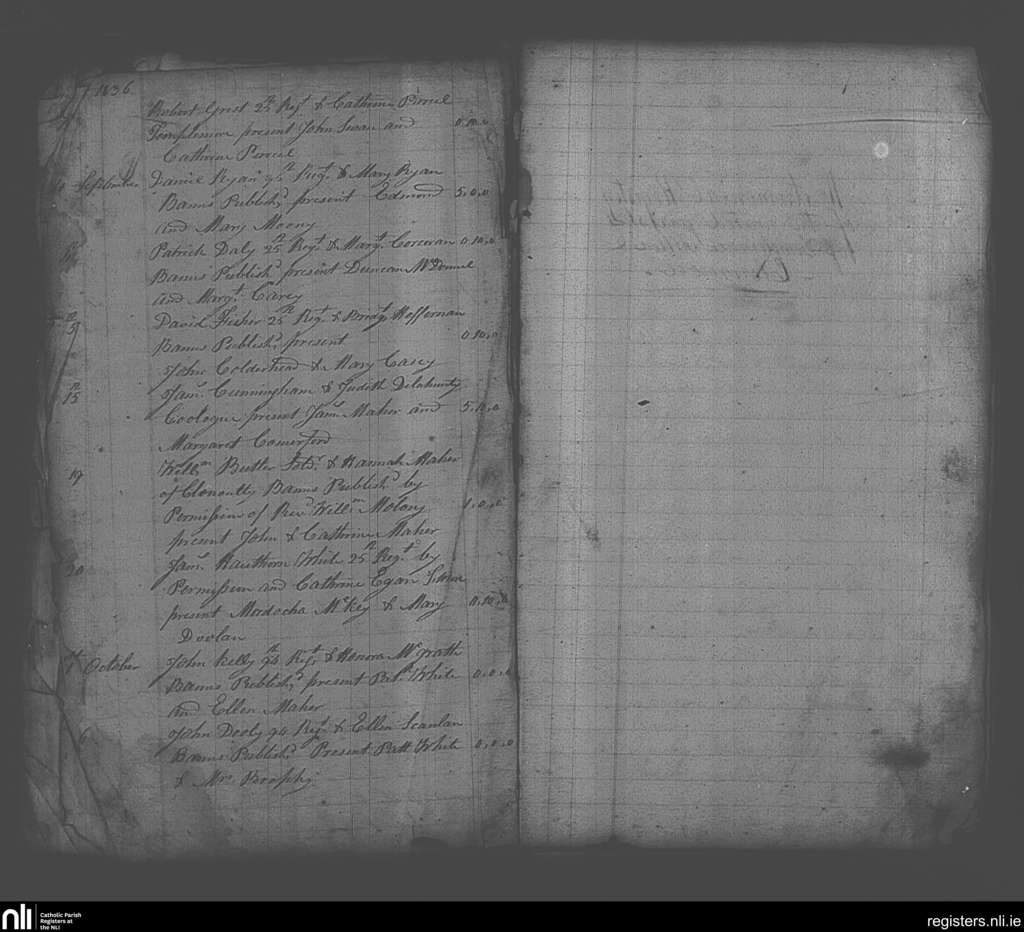 1836
Robert Grist 25th Regt & Cathrine Purcel
Templemore present John Swan and 0.10.0
Cathrine Purcel
September Daniel Ryan 94th Regt & Mary Ryan
Banns Publishd present Edmond 5.0.0
and Mary Moony
Patrick Daly 25th Regt & Margt Corcoran 0.10.0
Banns Publishd present Duncan McDonnel
and Margt Carey
5th David Fisher 25th Regt & Bridgt Heffernan
Banns Publishd present 0.10.0
John Colderhead & Mary Casey
15th Jams Cunningham & Judith Delahunty
present Jams Maher and 5.10.0
Margaret Comerford
19 Willm Butler & Hannah Maher
of Clonoulty Banns Publishd by
Permission of Revd Willm Molony 1.0.0
present John & Cathrine Maher
20 Jams Hawthorn White 25th Regt by
Permission and Cathrine Egan
present Madocha McKey & Mary 0.10.0
Doolan
October John Kelly 94th Regt & Honora McGrath
Banns Publishd present Patk White 0.0.0
and Ellen Maher
6 John Dooly 94 Regt & Ellen Scanlan
Banns Publishd Present Patt White 0.0.0
& Mrs Brophy
nli
Catholic Parish
Registers at
the NLI
registers.nli.ie